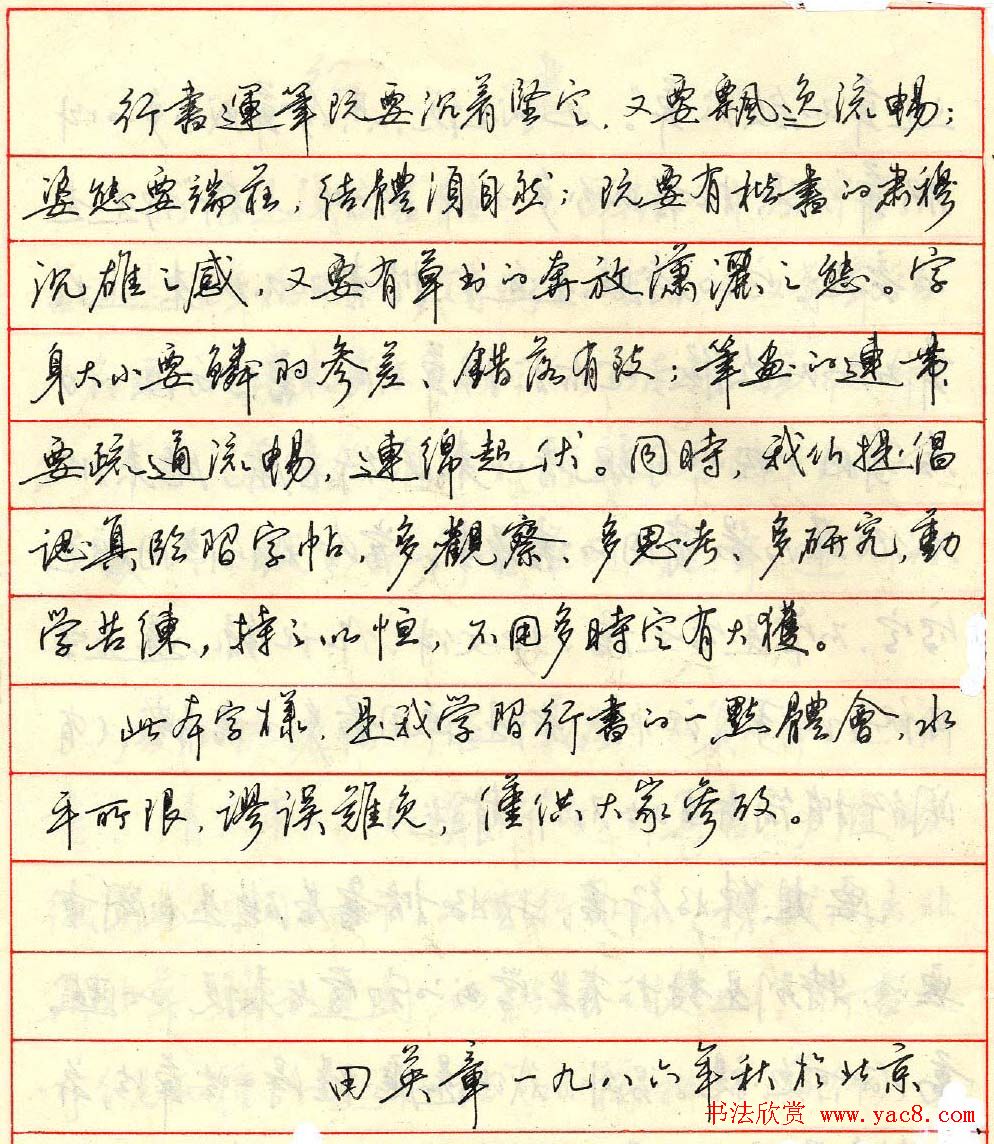 行書運筆既要沉着堅定，又要飄逸流暢；
姿態要端莊，結體須自然；既要有楷書的肅穆
沉雄之感，又要有草书的奔放瀟灑之態。字
身大小要鳞羽參差、錯落有致；筆畫的連带
要疏通流暢，連綿起伏。同時，我们提倡
認真臨習字帖，多觀察、多思考、多研究，勤
学苦練，持之以恒，不用多時定有大獲。
此本字樣，是我学習行書的一點體會，水
平所限，謬误難免，僅供大家參攷。
田英章一九八六年秋於北京
书法欣赏 www.yac8.com